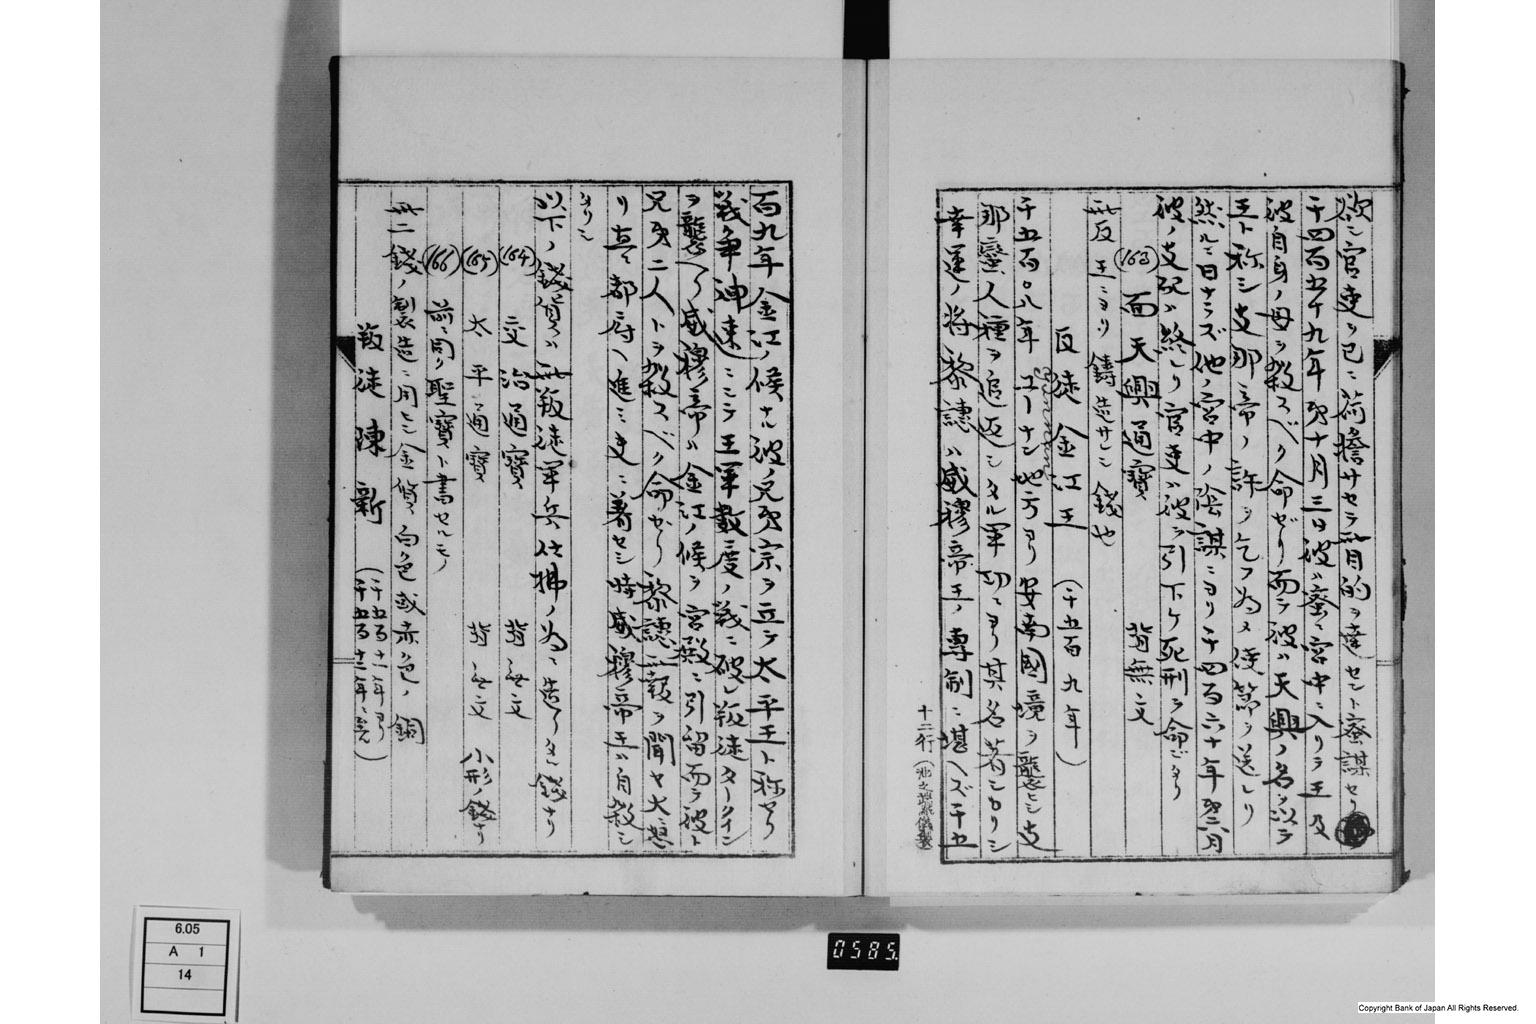 欲シ官吏ヲ已ニ荷擔サセテ此目的ヲ達セント蜜謀セリ
千四百五十九年第十月三日彼ハ蜜ニ宮中ニ入リテ王及
彼自身ノ母ヲ殺スベク命ゼリ而テ彼ハ天興ノ名ヲ以テ
王ト称シ支那帝ノ許ヲ乞フ為メ使節ヲ送レリ
然ルニ日ナラズ他ノ宮中ノ陰謀ニヨリ千四百六十年第六月
彼ノ支配ハ終レリ官吏ハ彼ヲ引下ケ死刑ヲ命ジタリ
(163) 面 天興通寳 背無文
此反王ニヨリ鋳造サレシ錢也
反徒 金江王 (千五百九年)
千五百〇八年 ユーナン地方ヨリ安南國境ヲ襲ヒシ支
Yunnan
那蠻人種ヲ追返シタル軍功ニヨリ其名著シカリシ
幸運ノ将黎譓ハ威穆帝王ノ專制ニ堪ヘズ千五
十二行
百九年金江ノ候ナル彼ノ兄弟宗ヲ立テ太平王ト称セリ
戦争神速ニシテ王軍數度ノ戦ニ破レ叛徒タークイン
ヲ襲ヘリ威穆帝ハ金江ノ候ヲ宮殿ニ引留而テ彼ト
兄弟二人トヲ殺スベク命ゼリ黎譓此報ヲ聞ヤ大ニ怒
リ直ニ都府ヘ進ミ更ニ着セシ時威穆帝王ハ自殺シ
タリシ
以下ノ錢貨ハ此叛徒軍兵仕拂ノ為ニ造リタル錢ナリ
(164) 交治通寳 背無文
(165) 太平通寳 背無文 小形ノ錢ナリ
(166) 前ニ同リ聖寳ト書セルモノ
此二錢ノ製造ニ用ヒシ金質ハ白色或赤色ノ銅
叛徒陳新 (千五百十一年ヨリ
千五百十二年ニ至ル)
6.05
A 1
14
0585.
Copyright Bank of Japan All Rights Reserved.